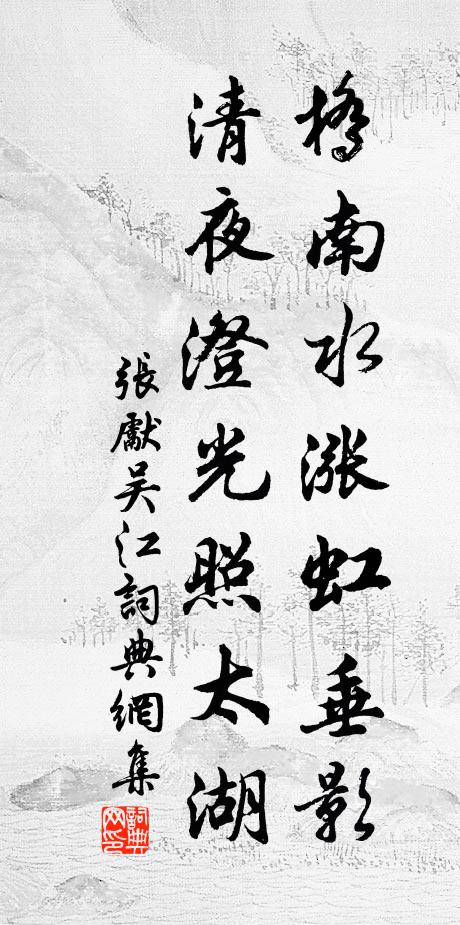 橋南水漲虹垂影
清夜澄光照太湖
張獻吳江詞典網集
詞典網印